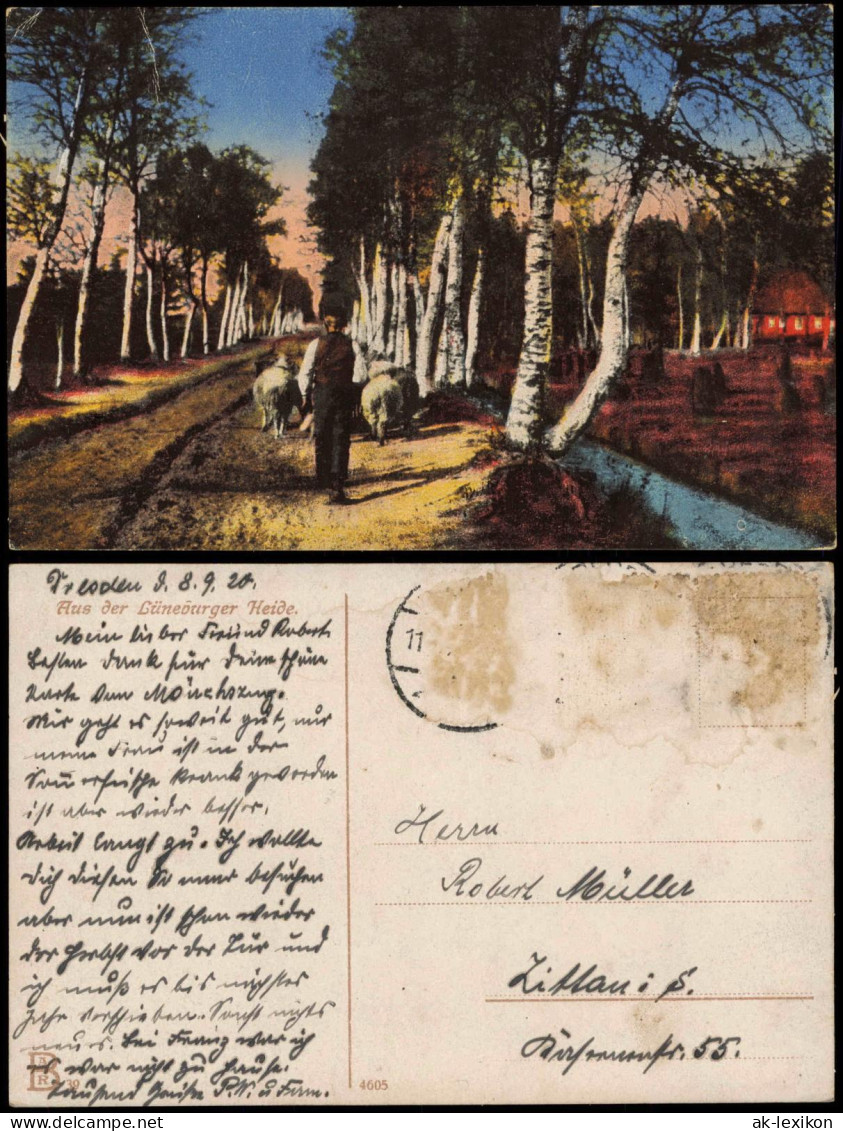 Dresden d. 8.9.20.
Aus der Lüneburger Heide.
Mein lieber Freund Robert.
Besten Dank für Deine schöne
Karte vom Mönchszug.
Mir geht es soweit gut, nur
meine Frau ist in der
Sommerfrische krank geworden
ist aber wieder besser.
Arbeit langt zu. Ich wollte
Dich diesen Sommer besuchen
aber nun ist schon wieder
der Herbst vor der Tür und
ich muß es bis nächstes
Jahr verschieben. Sonst nichts
neues. Bei Franz war ich
er war nicht zu Hause.
Tausend Grüße P.N. u Fam.
39
4605
11
Herrn
Robert Müller
Zittau i S.
Kasernenstr. 55.
ak-lexikon